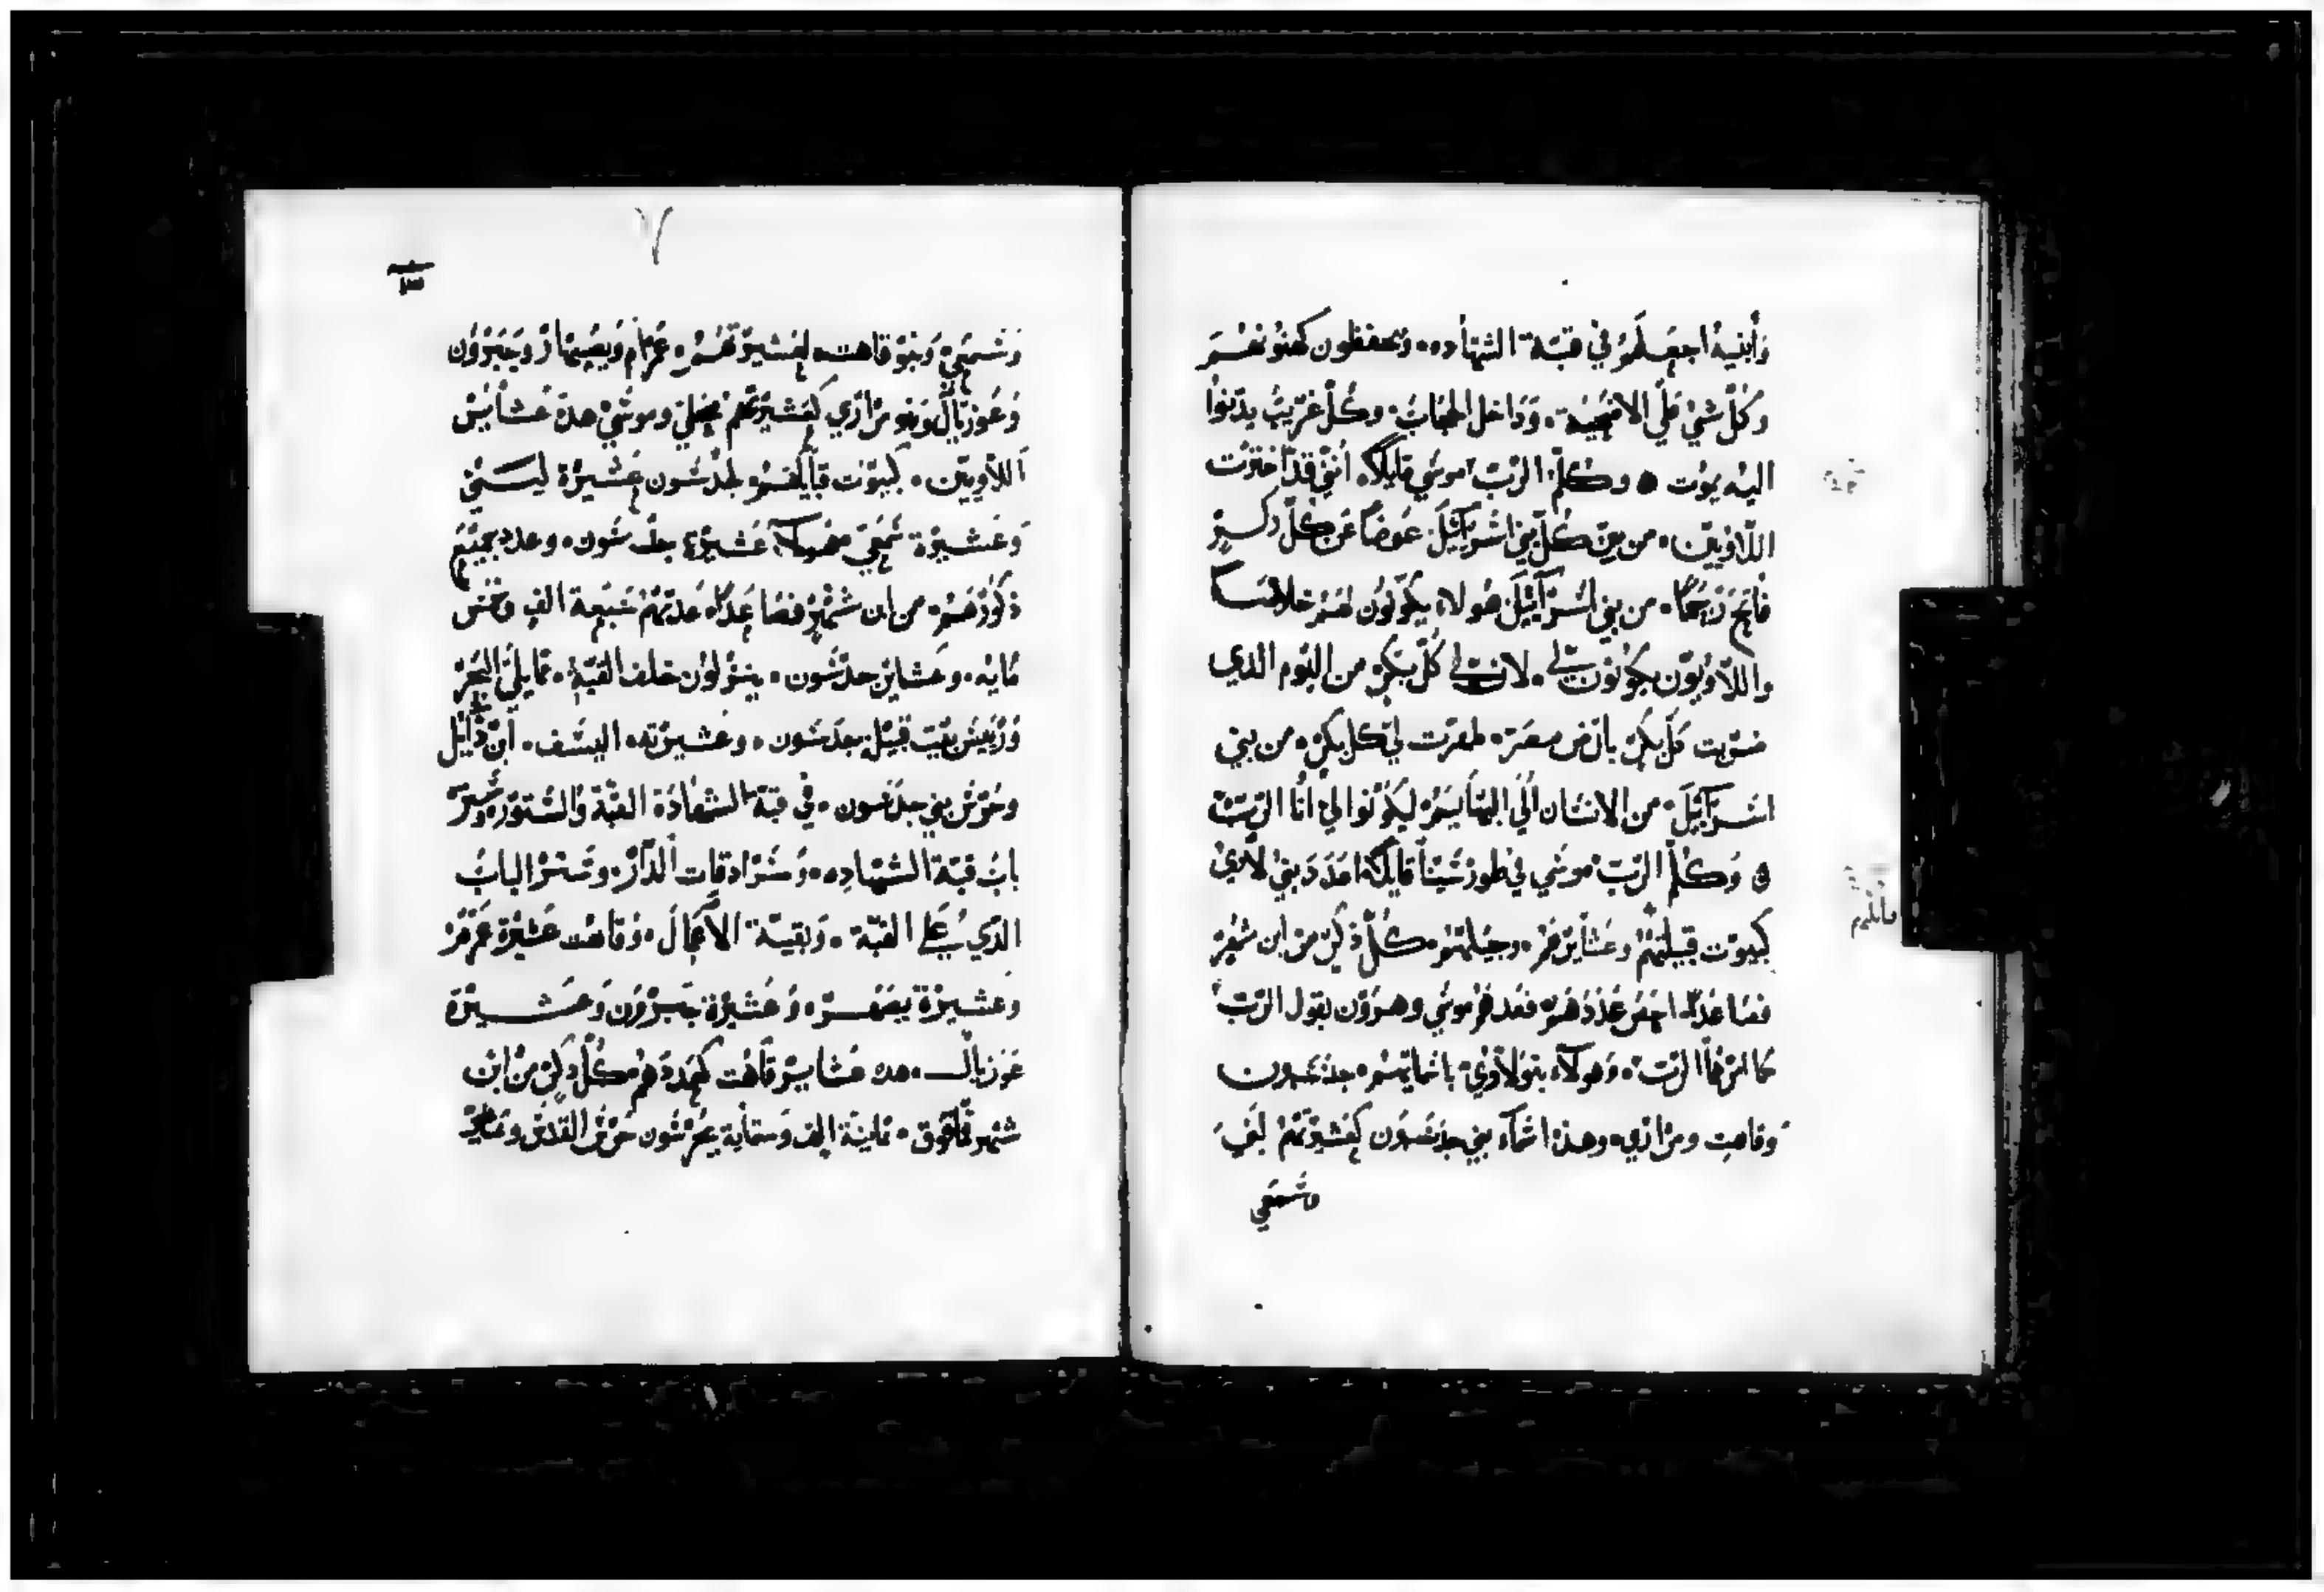 وَأبنيهُ اجعلهُمْ في قبّة الشهاده. ويحفظون كهنوتهُمْ
وكُلّ شيْ علي الامديحيه. وَداخل الحجابْ. وكُلّ غرَيبْ يدّنوا
اليهْ يموُت وكلّمْ الربّ موسَي قايلاً. أنّيْ قدْ اخترْت
اللّاويّين. من بين كُلّ بني اسْرَآئيلَ عوَضاً عَن كلّ دكرٍ
فاتحْ رَحمًا. من بني اسْرَآئيلَ هَولاءِ يكوَنوُن لهُمْ خلاصاً
واللّاويّون يكوُنوُن لي. لان لي كُلّ بِكرٍ من اليَوم الدي
ضرَبت كلّ بكرْ بارْض مصرَ. طهرّت لي كل بكرْ. من بني
اسْرَآئيلَ. من الانسَان اُلي البهَايمْ ليَكوُنوا لي أنَا الربّ
وَكُلّمْ الربّ موسَي في طورْ سَيْنا قايلاً اعدَدَ بنيْ لاَوْي
كبيوْت قبيلتهُمْ وعَشايرهمْ. وجيلهمْ كُلّ ذكرٍ من ابن شهْرْ
فصَاعدًا. احصُ عَدَدَهُمْ فعَدهمْ موسَي وهرَوْن بقول الربّ
كما امرَهُما الربّ. وَهوَلآء بنوْ لاَوْي. باسمايهمْ. جدسون
وقاهت ومرَاري. وهذهْ اسمآء بني جدسوُن كعشيرَتهُمْ لبنيَ
وشَمعَي
١٣
وَشمعَيْ. وَبنوْ قاهت. لعشيرَتهُمْ. عَمرَام وَيصْهارْ وَحَبرْوُن
وَعوزيالْ وَبنو مرَاري كعشيرَتهمْ محَلي وموشيْ هدهْ عَشايرْ
اللاّويّين. كبيوْت قبآيلهمْ. لجدْسوُن عَشيرَة لبَنيْ
وَعشيرَة شَمعَيْ هَولآءِ عَشيرَة جدْسوُن. وعددجميعهم
ذكوُرَهمْ. من ابن شهْرْ فصَاعدًا. عدتهُمْ سَبعة الف وخمس
مايه. وعَشايرْ جدْسوُن. ينزْلوُن خلف القبّه. مما يلي البَحرْ
وَرَيسْ بيْت قبيْل جدسَون. وعَشيرَته. اليسَف. ابن دايْل
وحَرسْ بني جدسون. في قبة الشهادَة القبّة والسّتوْر وَسترَ
بابْ قبّة الشهاده. وَسَرَادقات الدّارْ. وَسترْ البابْ
الدّي عَلي القبّة. وَبقيةّ الأعمال. وَقاهت عَشيرْة عَمرَم
وَعشيرَة يصَهرْ. وَعَشيرْة حَبرْوَن وَعشيرَة
عَوزيالْ. هده عَشايرْ قاهت كعَددهمْ كُلّ دكرْ منْ ابْن
شهر فما فوق. تمانيَة الف وَستمآية يحرْسَوُن حَرسْ القدْس وعَشايرْ